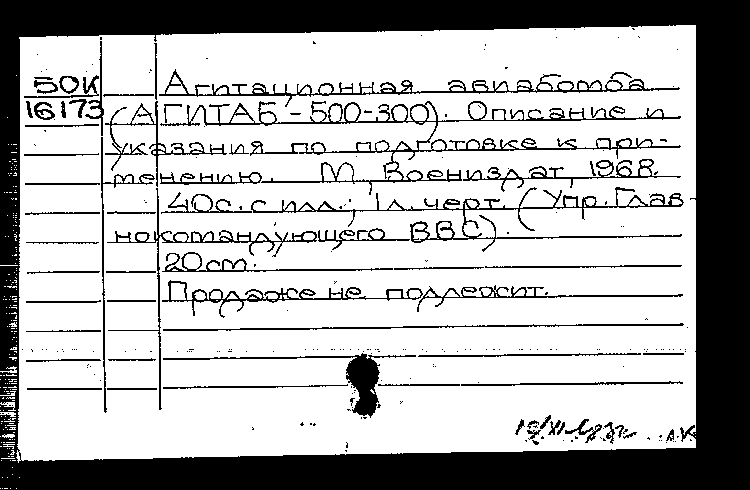 50К Агитационная авиабомба
16173 (АГИТАБ-500-300). Описание и
указания по подготовке к при-
менению. М., Воениздат, 1968.
40с. с илл.; 1л. черт. (Упр. Глав-
нокомандующего ВВС).
20см.
Продаже не подлежит.